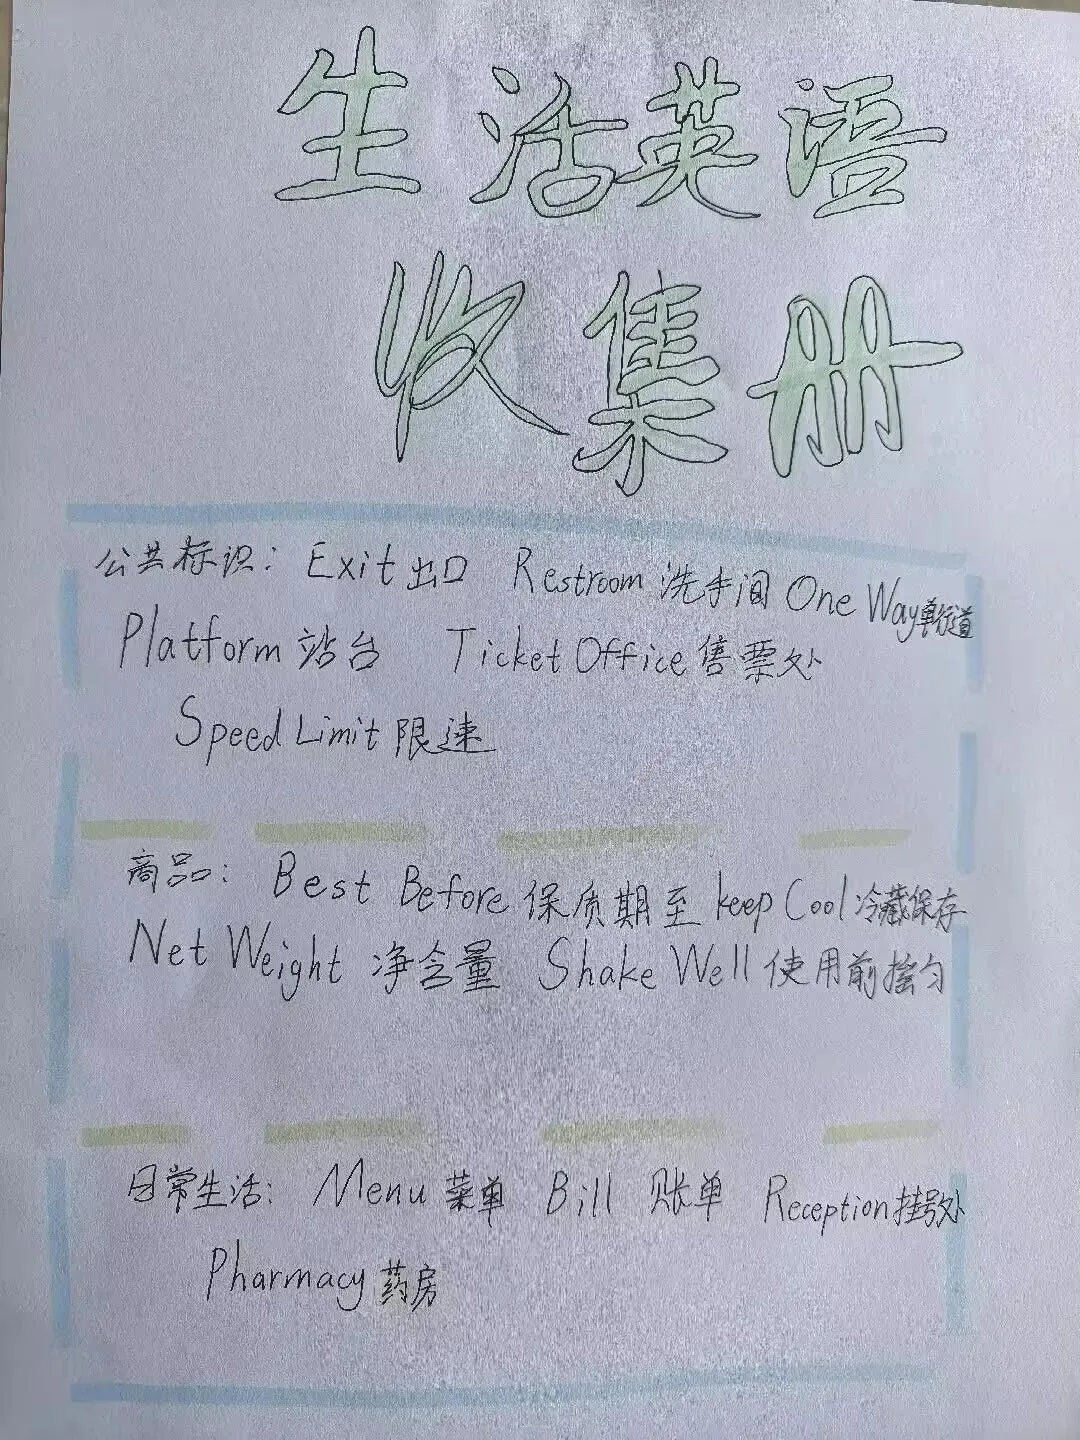 生活英语
收集册
公共标识：Exit出口 Restroom 洗手间 One Way单行道
Platform 站台 Ticket Office售票处
Speed Limit 限速
商品：Best Before 保质期至 keep Cool冷藏保存
Net Weight 净含量 Shake Well 使用前摇匀
日常生活：Menu 菜单 Bill 账单 Reception挂号处
Pharmacy 药房